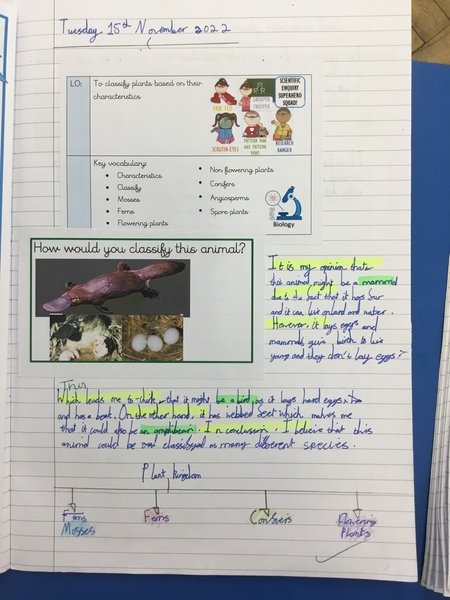 Tuesday 15th November 2022
LO:
To classify plants based on their
characteristics
SCIENTIFIC
ENQUIRY
SUPERHERO
SQUAD!
FAIR
GROUPER
TROOPER
SCRUTIN-EYES
PATTERN MAN
AND PATTERN
PAWS
RESEARCH
RANGER
Key vocabulary:
Characteristics
Classify
Mosses
Ferns
Flowering plants
Non flowering plants
Conifers
Angiosperms
Spore plants
Biology
How would you classify this animal?
It is my opinion that
this animal might be a mammal
due to the fact that it has fur
and it can live on land and water.
However, it lays eggs and
mammals give birth to live
young and they don't lay eggs.
Thus
Which leads me to think that it might be a bird as it lays hard eggs
and has a beak. On the other hand, it has webbed feet which makes me
that it could also be an amphibean. In conclusion, I believe that this
animal could be classified as many different species.
Plant kingdom
Ferns
Mosses
Ferns
Conifers
Flowering
Plants